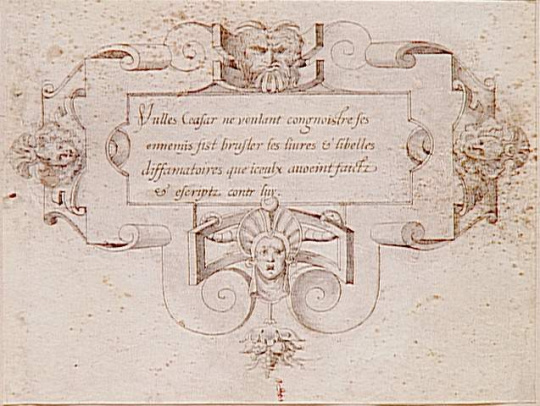 Iulles Ceasar ne voulant congnoistre ses
ennemis fist brusler les liures & libelles
diffamatoires que iceulx auoeint faictz
& escriptz contr luy.